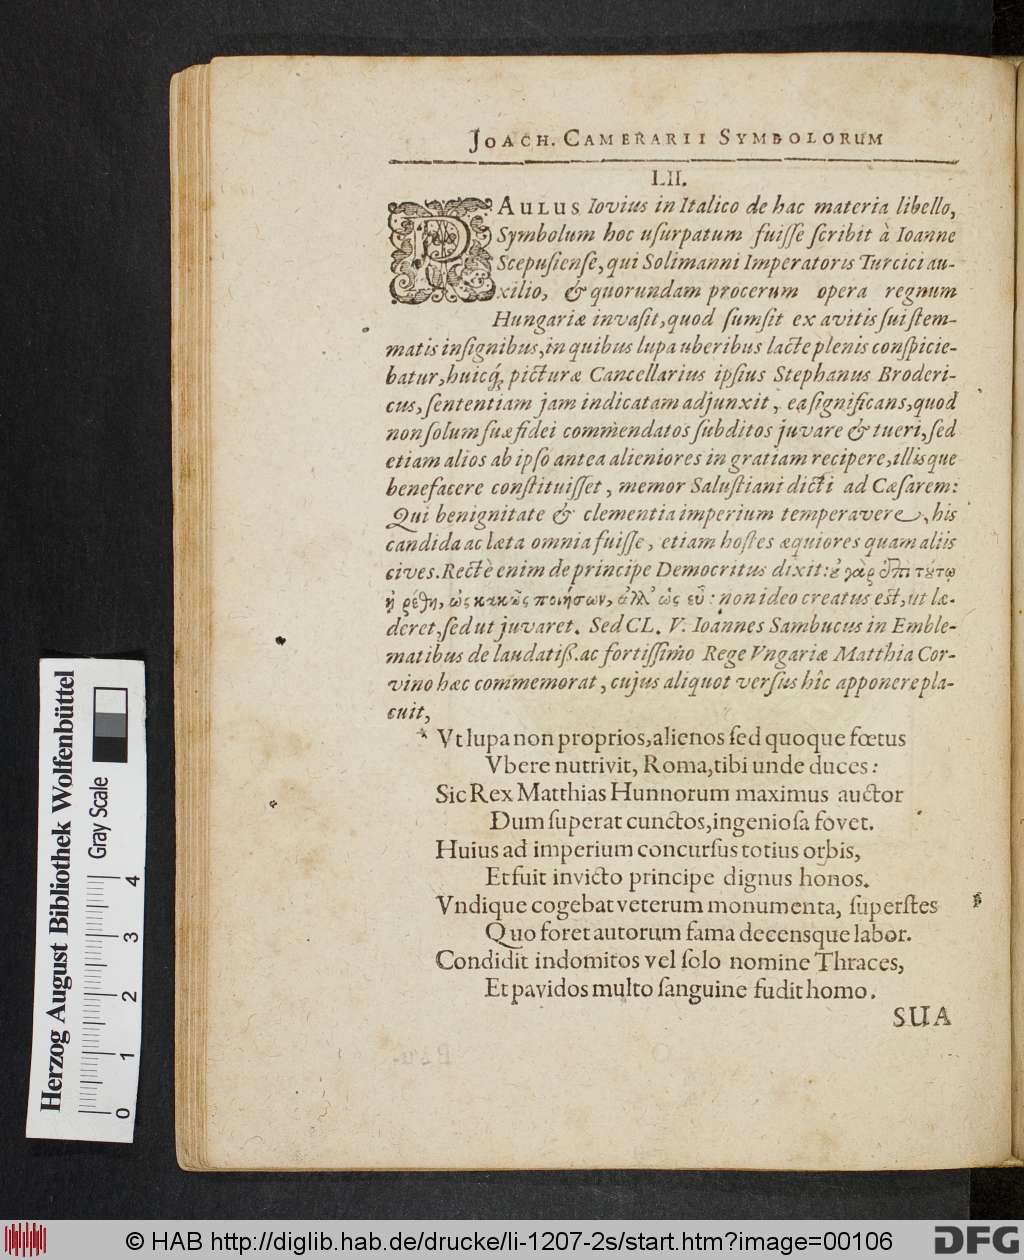 JOACH. CAMERARII SYMBOLORUM
LII.
PAULUS Iovius in Italico de hac materia libello,
Symbolum hoc uſurpatum fuiſſe ſcribit à Ioanne
Scepuſienſe, qui Solimanni Imperatoris Turcici au-
xilio, & quorundam procerum opera regnum
Hungariæ invaſit, quod ſumſit ex avitis ſui ſtem-
matis inſignibus, in quibus lupa uberibus lacte plenis conſpicie-
batur, huicq́; picturæ Cancellarius ipſius Stephanus Broderi-
cus, ſententiam jam indicatam adjunxit, ea ſignificans, quod
non ſolum ſuæ fidei commendatos ſubditos juvare & tueri, ſed
etiam alios ab ipſo antea alieniores in gratiam recipere, illisque
benefacere conſtituiſſet, memor Saluſtiani dicti ad Cæſarem:
Qui benignitate & clementia imperium temperavere, his
candida ac læta omnia fuiſſe, etiam hoſtes æquiores quam aliis
cives. Rectè enim de principe Democritus dixit: ὀ γὰρ ἐπὶ τούτῳ
ᾑρέθη, ὡς κακῶς ποιήσων, ἀλλ' ὡς εὖ: non ideo creatus est, ut læ-
deret, ſed ut juvaret. Sed CL. V. Ioannes Sambucus in Emble-
matibus de laudatiß. ac fortiſſimo Rege Vngariæ Matthia Cor-
vino hæc commemorat, cujus aliquot verſus hîc apponere pla-
cuit,
Vt lupa non proprios, alienos ſed quoque fœtus
Vbere nutrivit, Roma, tibi unde duces:
Sic Rex Matthias Hunnorum maximus auctor
Dum ſuperat cunctos, ingenioſa fovet.
Huius ad imperium concurſus totius orbis,
Et fuit invicto principe dignus honos.
Vndique cogebat veterum monumenta, ſuperſtes
Quo foret autorum fama decensque labor.
Condidit indomitos vel ſolo nomine Thraces,
Et pavidos multo ſanguine fudit homo.
SUA
Herzog August Bibliothek Wolfenbüttel
Gray Scale
0 1 2 3 4
© HAB http://diglib.hab.de/drucke/li-1207-2s/start.htm?image=00106
DFG